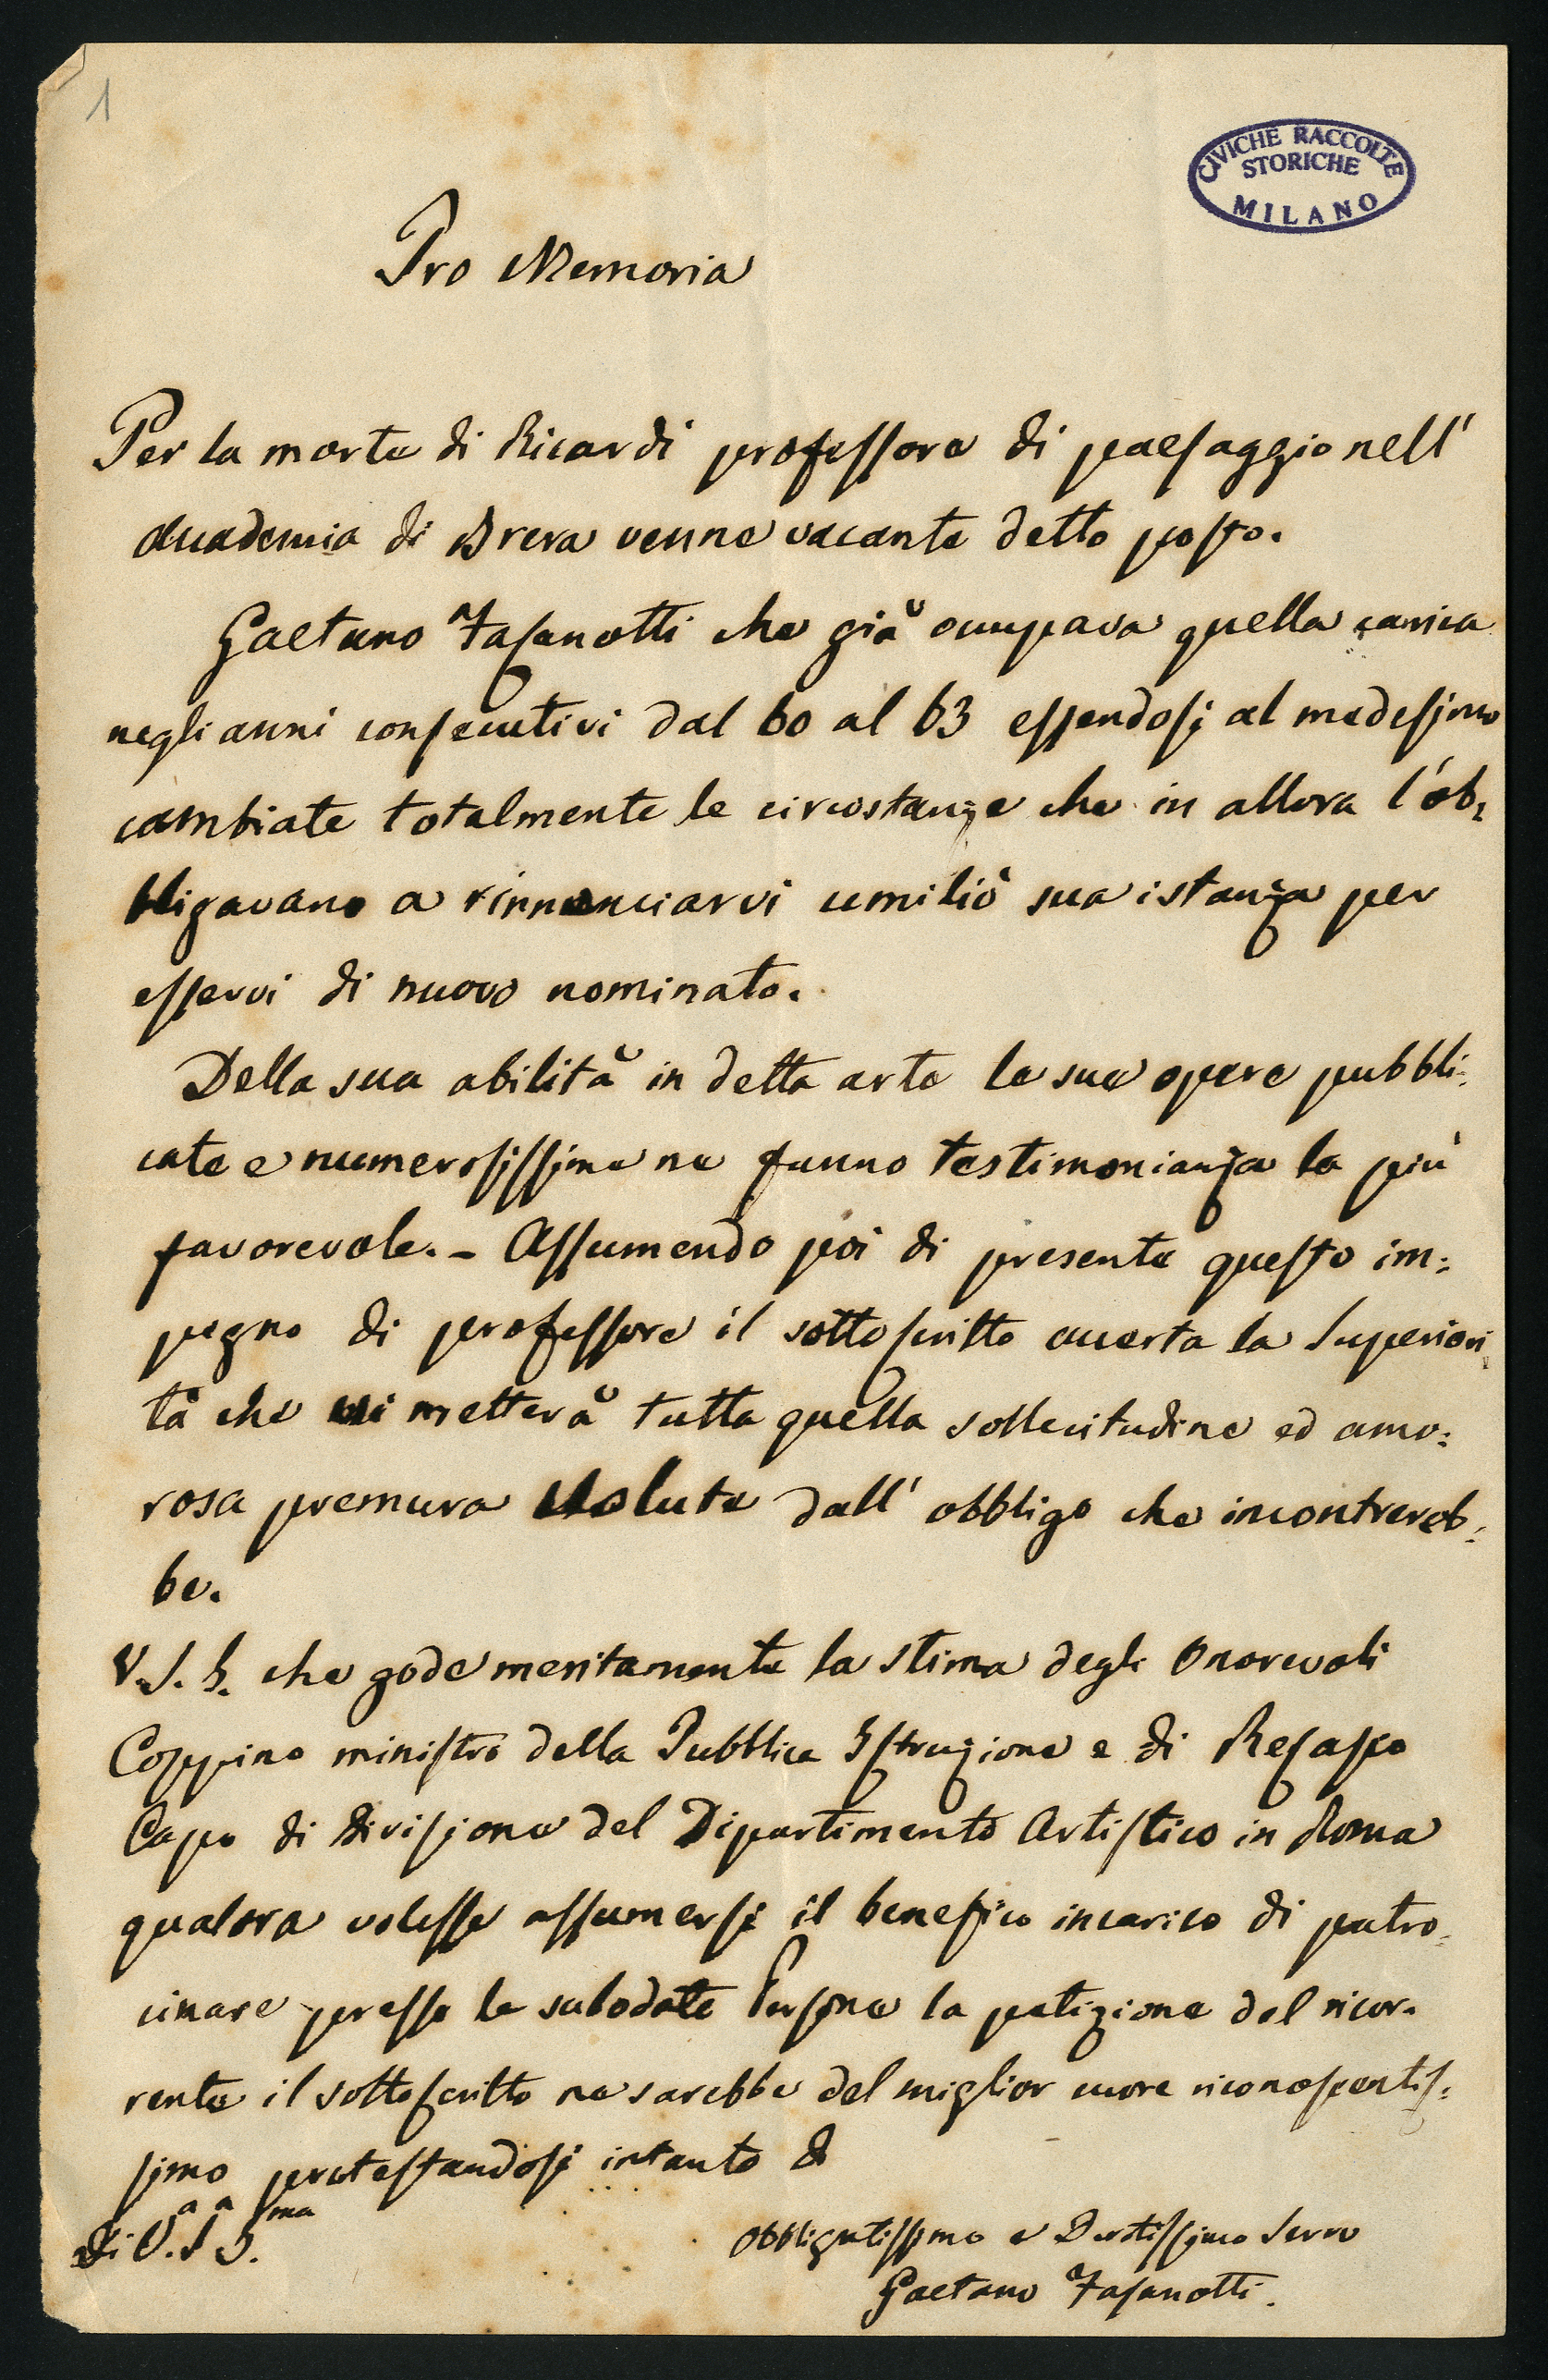 1
CIVICHE RACCOLTE
STORICHE
MILANO
Pro Memoria
Per la morte di Ricardi professore di paesaggio nell'
Accademia di Brera venne vacante detto posto.
Gaetano Fasanotti che già occupava quella carica
negli anni consecutivi dal 60 al 63 essendosi al medesimo
cambiate totalmente le circostanze che in allora l'ob:
bligavano a rinnunciarvi umiliò sua istanza per
esservi di nuovo nominato.
Della sua abilità in detta arte le sue opere pubbli:
cate e numerosissime ne fanno testimonianza la più
favorevole. - Assumendo poi di presente questo im:
pegno di professore il sottoscritto accerta la Superiori
tà che vi metterà tutta quella sollecitudine ed amo:
rosa premura volute dall' obbligo che incontrereb:
be.
V. S. I. che gode meritamente la stima degli Onorevoli
Coppino ministro della Pubblica Istruzione e di Resaspo
Capo di Divisione del Dipartimento Artistico in Roma
qualora volesse assumersi il benefico incarico di patro:
cinare presso le sulodate Persone la petizione del ricor:
rente il sottoscritto ne sarebbe del miglior cuore riconoscentis:
simo protestandosi intanto &
Di V.a S.a I.ma
Obbligatissimo e Devotissimo Servo
Gaetano Fasanotti.